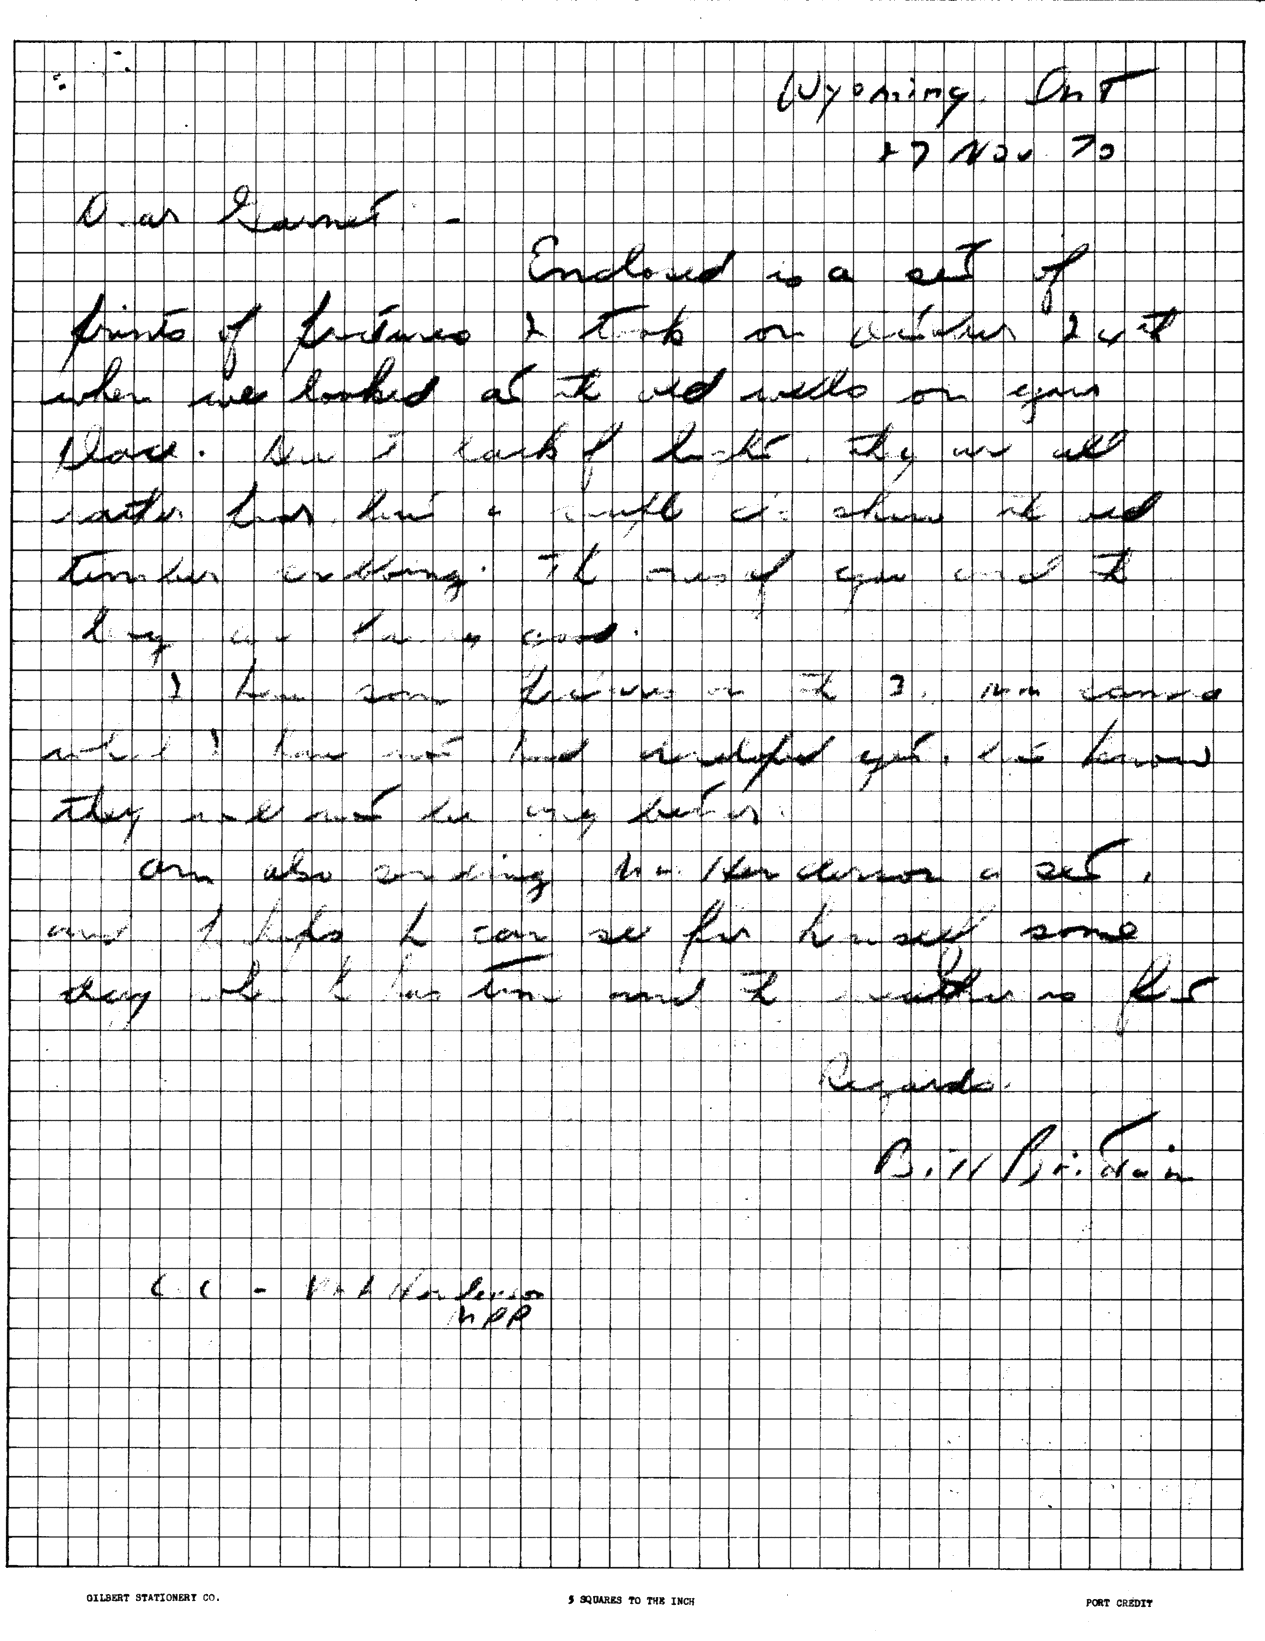 Wyoming, Ont
27 Nov. 70
Dear Garnet -
Enclosed is a set of
prints of pictures I took on October 24th
when we looked at the old wells on your
place. Due to lack of light, they are all
rather poor, but a couple do show the old
timber cribbing. The ones of you and the
boy are fairly good.
I have some pictures in the 35 mm camera
which I have not had developed yet, but know
they will not be any better.
Am also sending Mr. Henderson a set,
and perhaps he can see for himself some
day when he has time and the weather is
Regards.
Bill
C.C - Henderson
MPP
GILBERT STATIONERY CO.
5 SQUARES TO THE INCH
PORT CREDIT